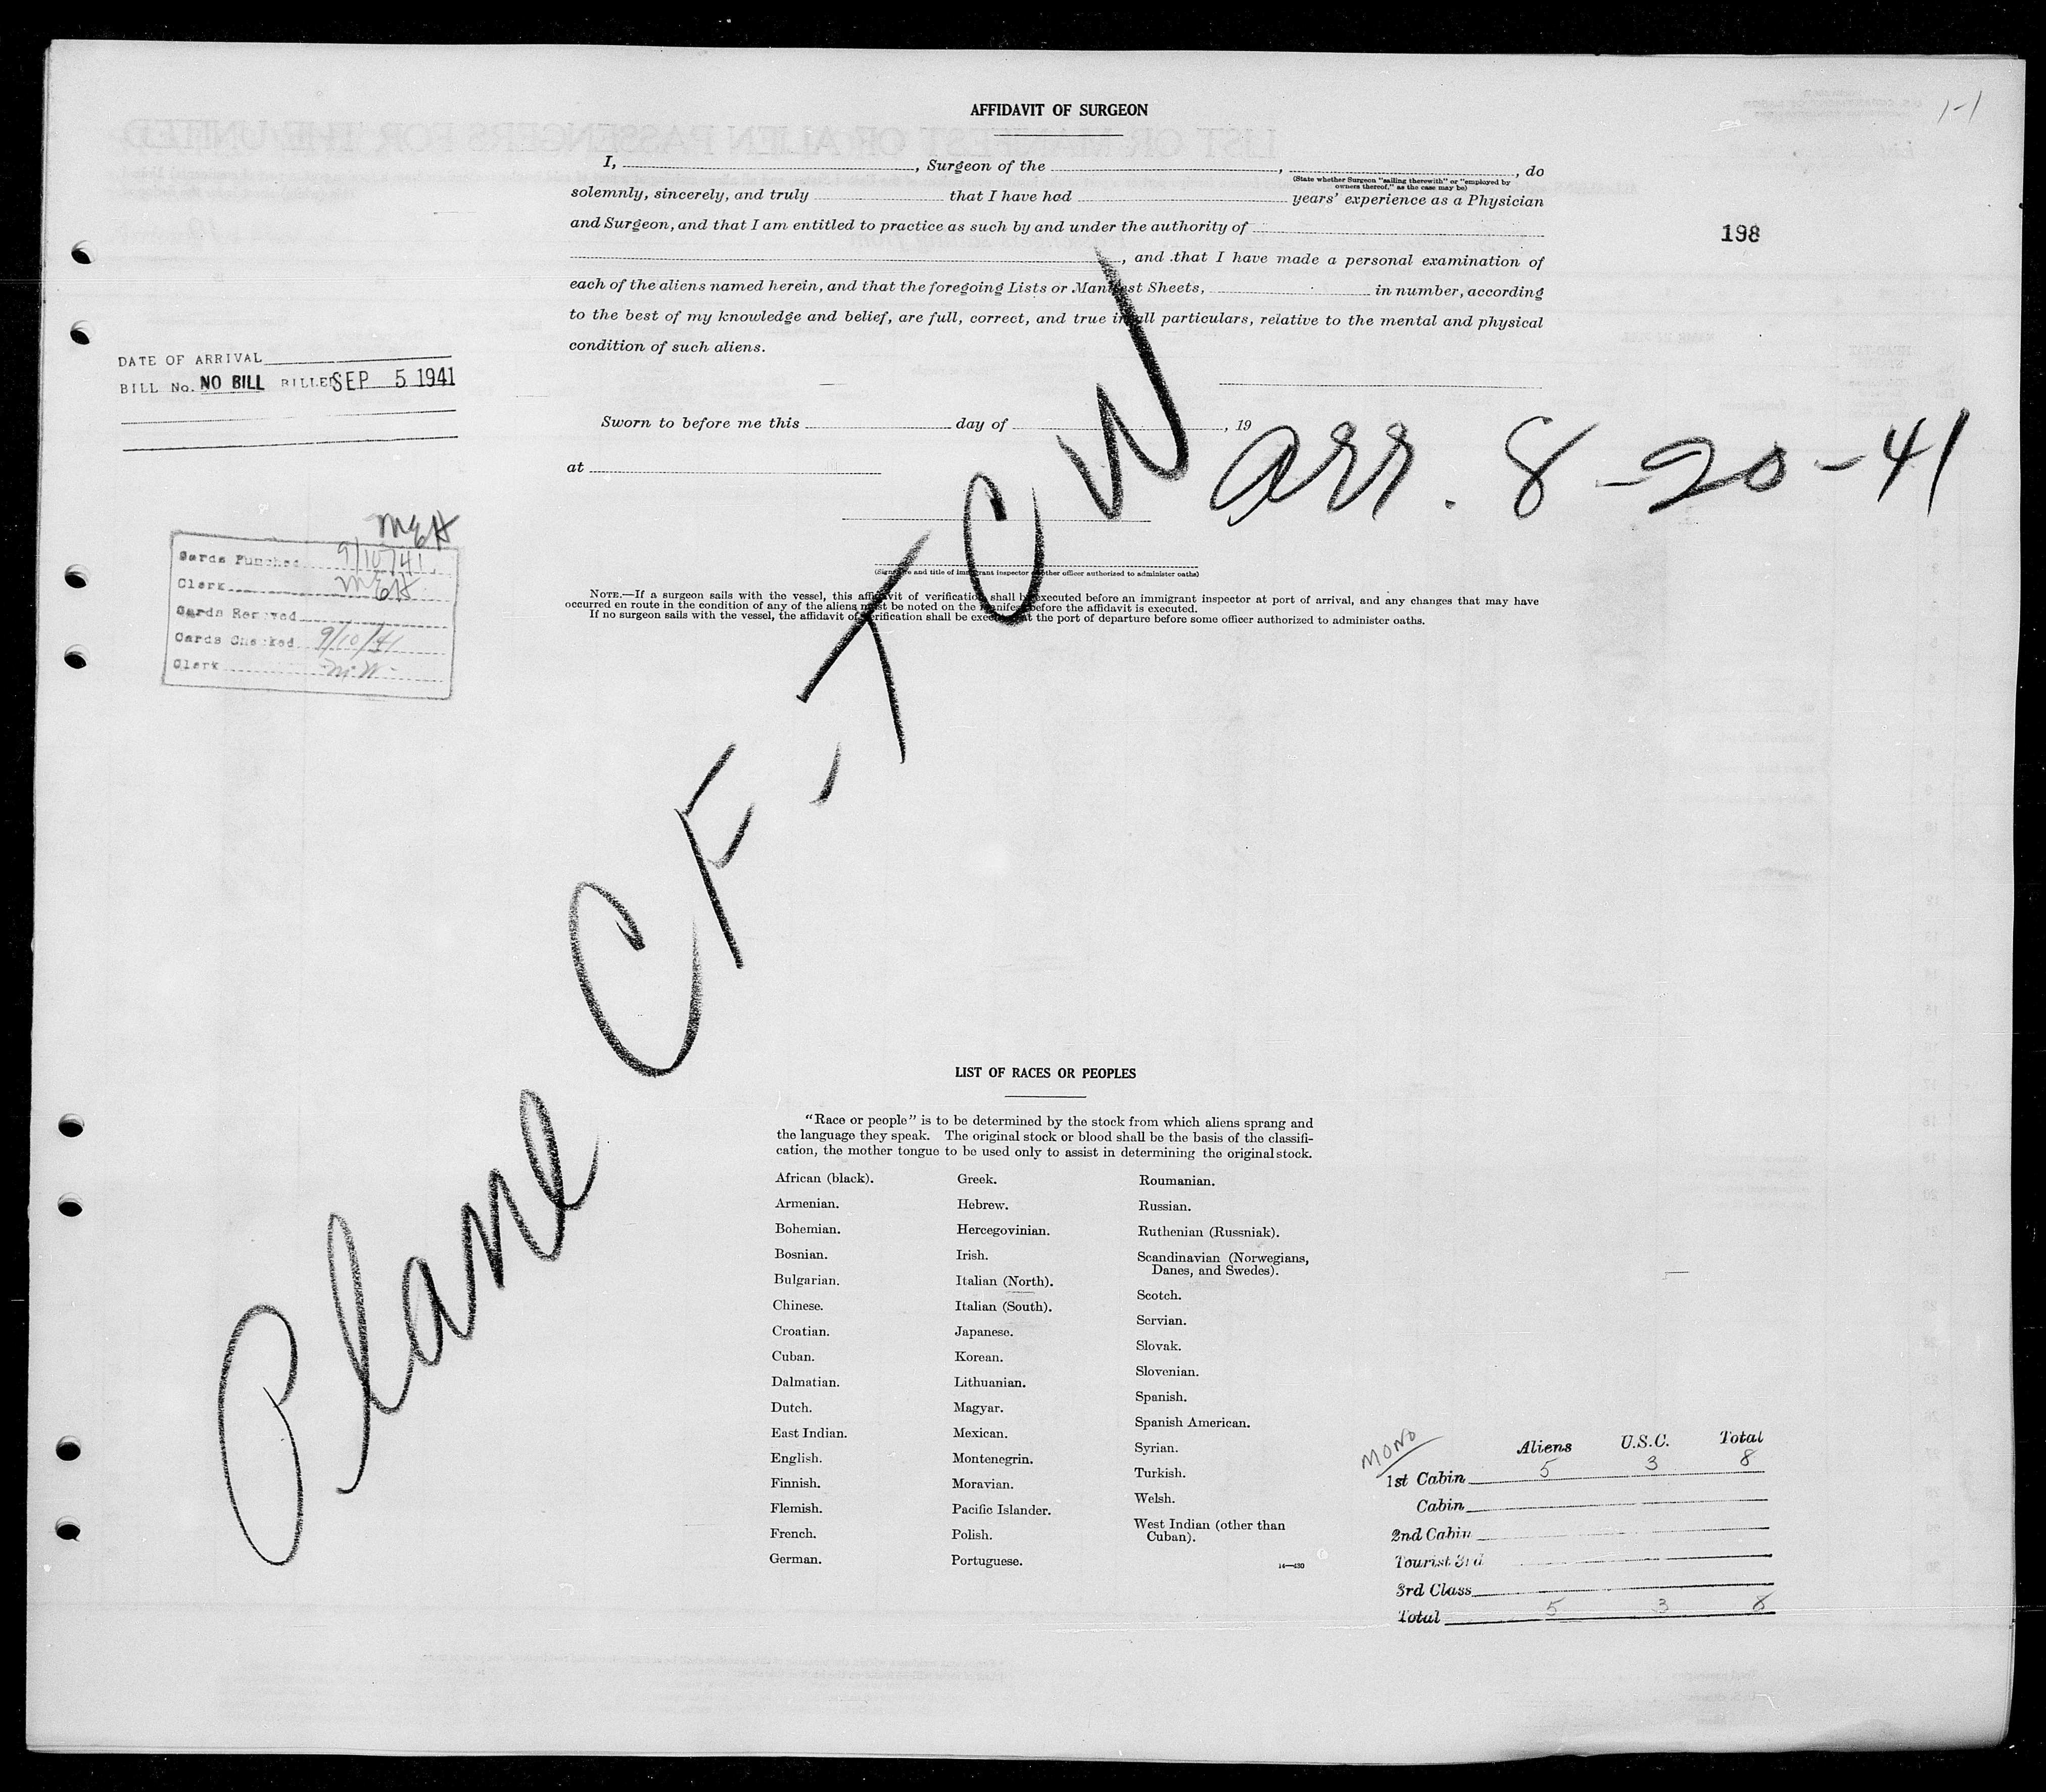 AFFIDAVIT OF SURGEON
1-1
I, , Surgeon of the , , do
(State whether Surgeon "sailing therewith" or "employed by
owners thereof," as the case may be)
solemnly, sincerely, and truly that I have had years' experience as a Physician
and Surgeon, and that I am entitled to practice as such by and under the authority of
198
, and that I have made a personal examination of
each of the aliens named herein, and that the foregoing Lists or Manifest Sheets, in number, according
to the best of my knowledge and belief, are full, correct, and true in all particulars, relative to the mental and physical
condition of such aliens.
DATE OF ARRIVAL
BILL No. NO BILL BILLED SEP 5 1941
Sworn to before me this day of , 19
at
arr. 8-20-41
Plane CF-TCW
(Signature and title of immigrant inspector or other officer authorized to administer oaths)
NOTE.—If a surgeon sails with the vessel, this affidavit of verification shall be executed before an immigrant inspector at port of arrival, and any changes that may have
occurred en route in the condition of any of the aliens must be noted on the manifest before the affidavit is executed.
If no surgeon sails with the vessel, the affidavit of verification shall be executed at the port of departure before some officer authorized to administer oaths.
MEH
Cards Punched 9/10/41.
Clerk MEH
Cards Removed
Cards Checked 9/10/41
Clerk M.W.
LIST OF RACES OR PEOPLES
"Race or people" is to be determined by the stock from which aliens sprang and
the language they speak. The original stock or blood shall be the basis of the classifi-
cation, the mother tongue to be used only to assist in determining the original stock.
African (black).
Armenian.
Bohemian.
Bosnian.
Bulgarian.
Chinese.
Croatian.
Cuban.
Dalmatian.
Dutch.
East Indian.
English.
Finnish.
Flemish.
French.
German.
Greek.
Hebrew.
Hercegovinian.
Irish.
Italian (North).
Italian (South).
Japanese.
Korean.
Lithuanian.
Magyar.
Mexican.
Montenegrin.
Moravian.
Pacific Islander.
Polish.
Portuguese.
Roumanian.
Russian.
Ruthenian (Russniak).
Scandinavian (Norwegians,
Danes, and Swedes).
Scotch.
Servian.
Slovak.
Slovenian.
Spanish.
Spanish American.
Syrian.
Turkish.
Welsh.
West Indian (other than
Cuban).
14—430
MONO
Aliens U.S.C. Total
1st Cabin 5 3 8
Cabin
2nd Cabin
Tourist 3rd
3rd Class
Total 5 3 8